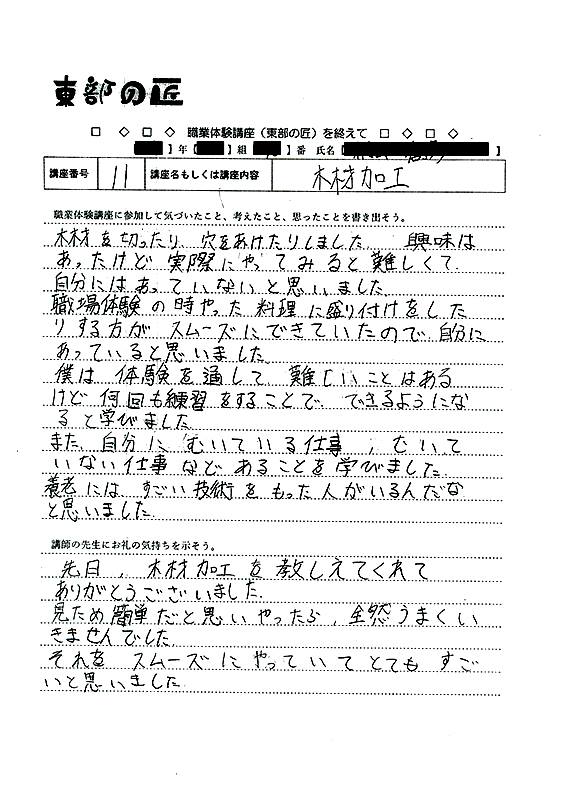 東部の匠
□ ◇ □ ◇ 職業体験講座（東部の匠）を終えて □ ◇ □ ◇
】年【 】組 【 】番 氏名【 】
講座番号 11 講座名もしくは講座内容 木材加工
職業体験講座に参加して気づいたこと、考えたこと、思ったことを書き出そう。
木材を切ったり、穴をあけたりしました 興味は
あったけど実際にやってみると難しくて
自分にはあっていないと思いました
職場体験の時やった料理に盛り付けをした
りする方がスムーズにできていたので自分に
あっていると思いました
僕は体験を通して難しいことはある
けど何回も練習をすることで、できるようにな
ると学びました
また、自分にむいている仕事，むいて
いない仕事などあることを学びました
養老にはすごい技術をもった人がいるんだな
と思いました
講師の先生にお礼の気持ちを示そう。
先日，木材加工を教しえてくれて
ありがとうございいました
見ため簡単だと思いやったら，全然うまくい
きませんでした
それを スムーズにやっていてとてもすご
いと思いました